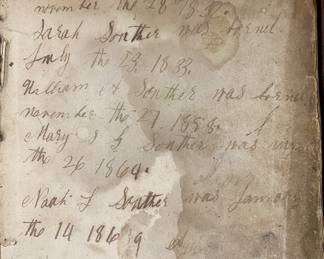 november the 28 18
Sarah Souther was bornd
July the 23 1833.
William A Souther was bornd
november the 27 1858.
Mary J L Souther was
the 26 1864.
Noah L Souther was January
the 14 186 9